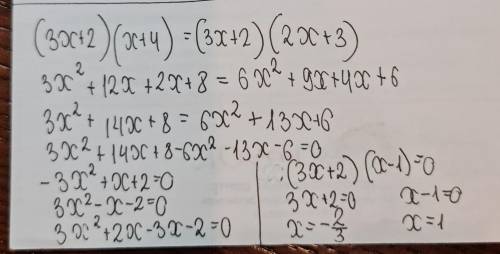 (3x+2)(x+4)=(3x+2)(2x+3)
3x²+12x+2x+8=6x²+9x+4x+6
3x²+14x+8=6x²+13x+6
3x²+14x+8-6x²-13x-6=0
-3x²+x+2=0
3x²-x-2=0
3x²+2x-3x-2=0
(3x+2)(x-1)=0
3x+2=0 x-1=0
x=-2/3 x=1